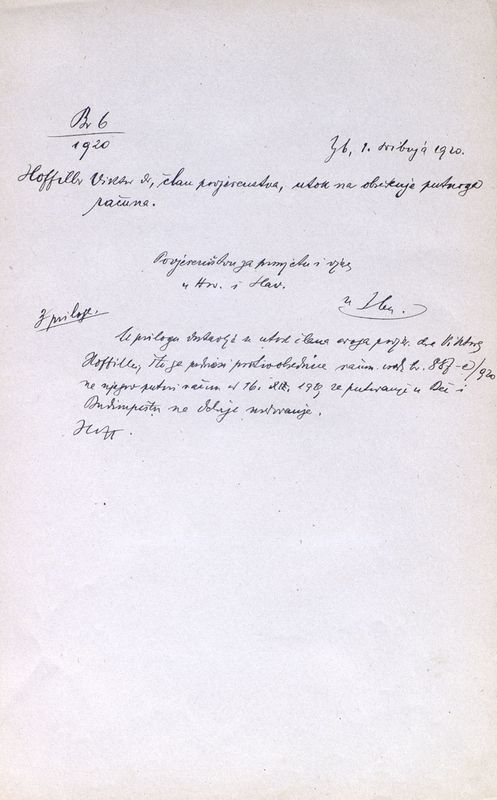 Br 6
1920
Zb, 1. svibnja 1920.
Hoffiller Viktor dr, član povjerenstva, utok na obsikuje putnoga
računa.
Povjereništvu za prosvjetu i vjeru
u Hrv. i Slav.
u Zbu.
3 priloga.
U prilogu dostavlja se utok člana ovoga povjer. dra Viktora
Hoffillera, što ga podnosi protiv obsikuje račun. br. 887-e/920
na njegov putni račun od 16. XII. 1919 za putovanje u Beč i
Budimpeštu na dalnje uredovanje.
Hoff.